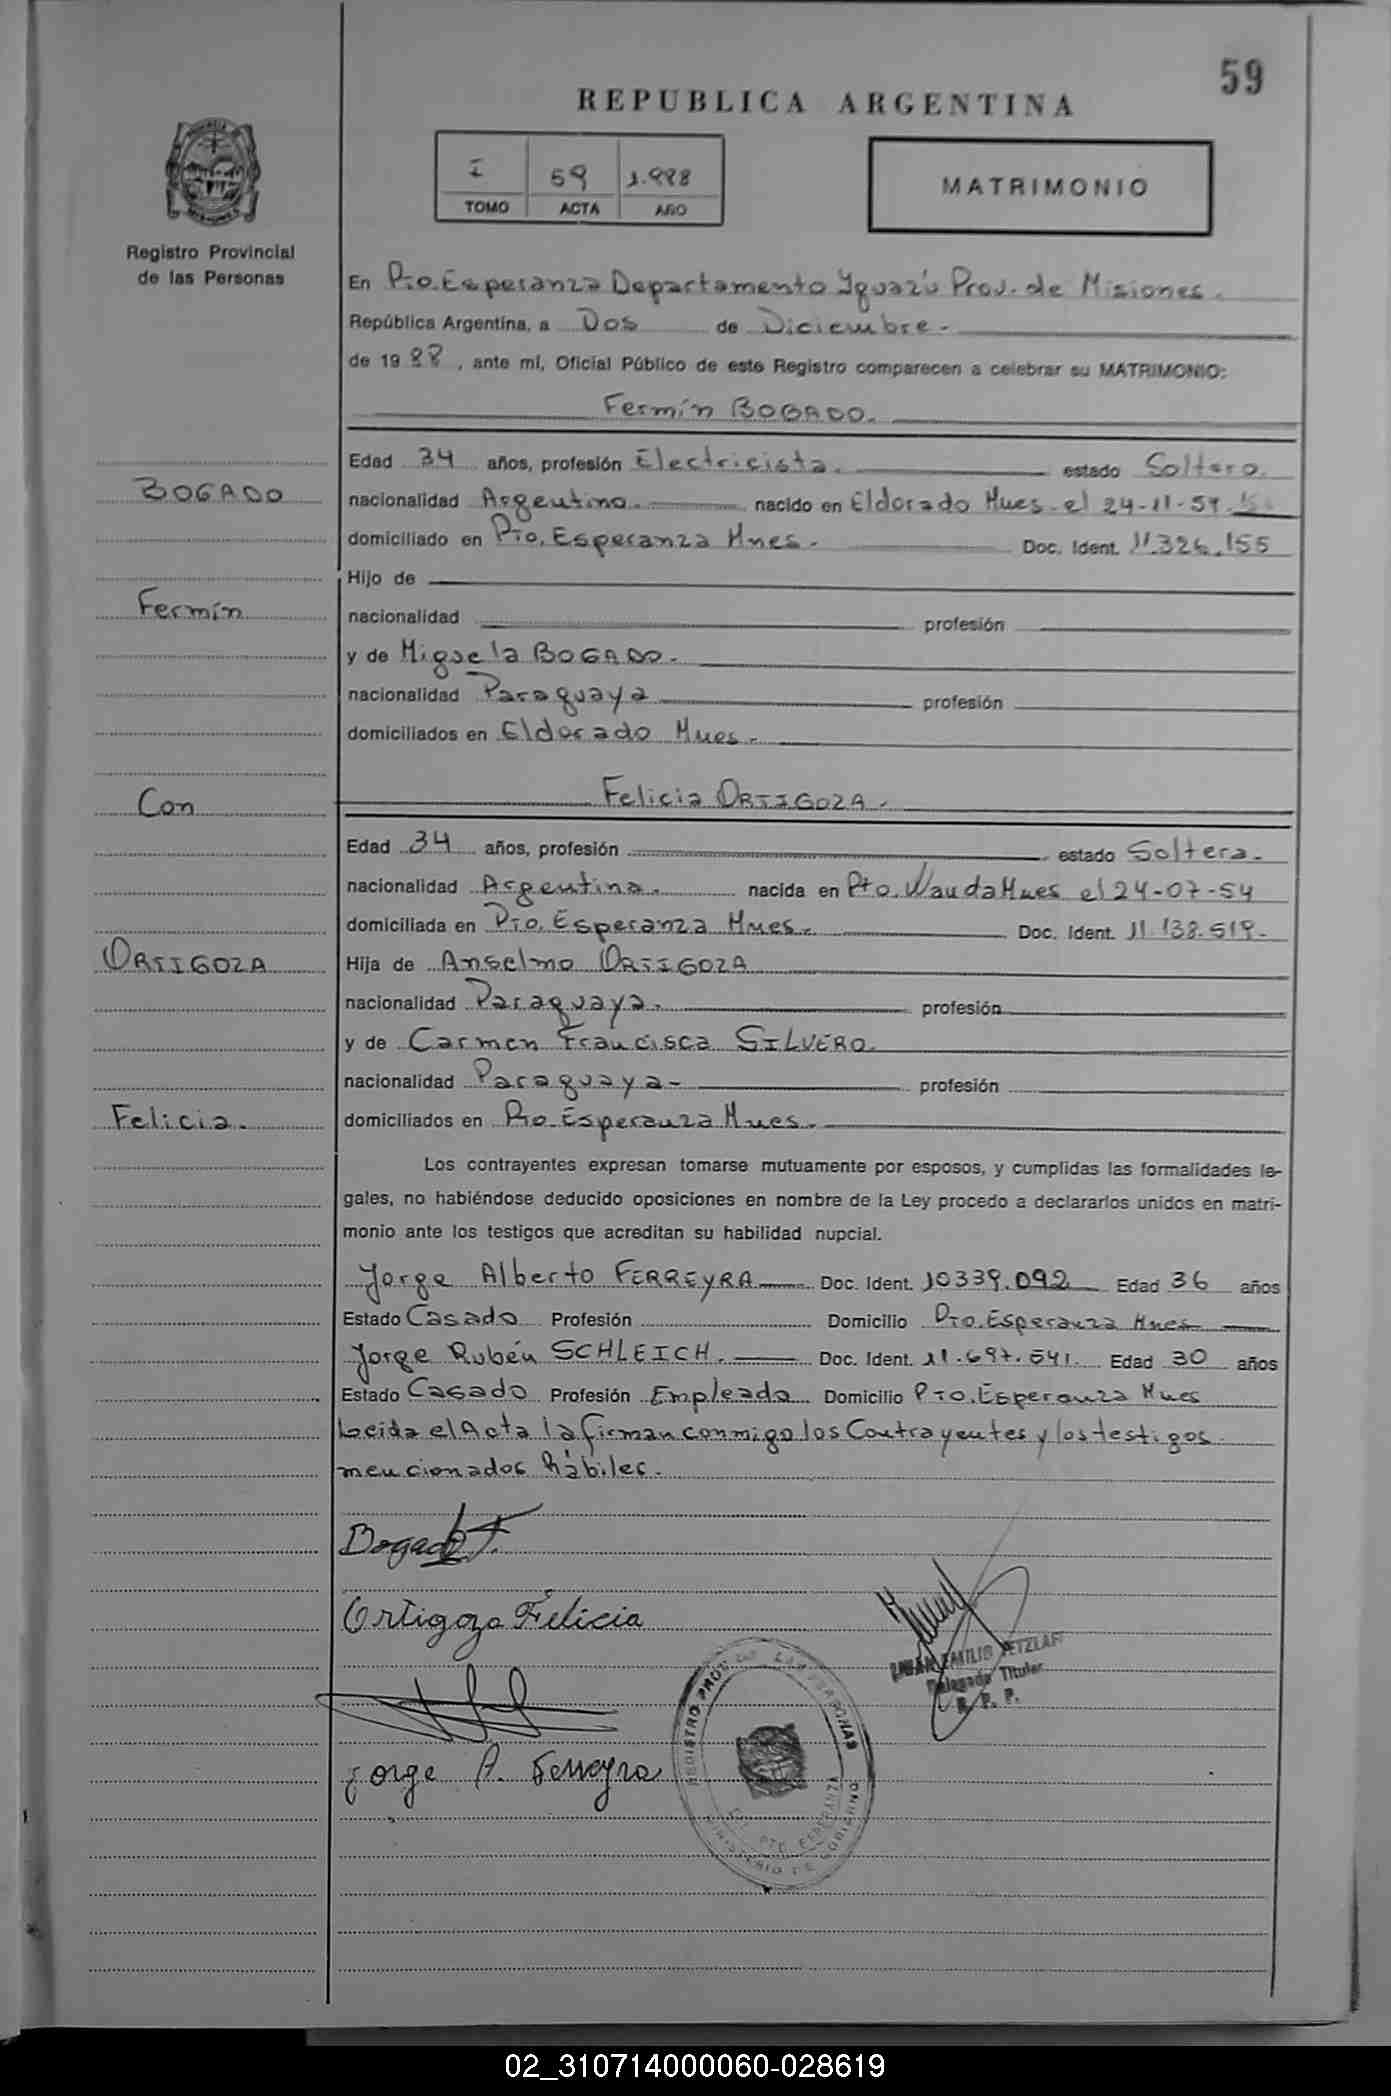 59
REPUBLICA ARGENTINA
I 59 1.988
TOMO ACTA AÑO
MATRIMONIO
Registro Provincial
de las Personas
En Pto. Esperanza Departamento Yguazú Prov. de Misiones.
República Argentina, a Dos de Diciembre.-
de 1988, ante mí, Oficial Público de este Registro comparecen a celebrar su MATRIMONIO:
Fermín BOGADO.
Edad 34 años, profesión Electricista. estado Soltero.
BOGADO
nacionalidad Argentino. nacido en Eldorado Mnes. el 24-11-
domiciliado en Pto. Esperanza Mnes.- Doc. Ident. 11.326.155
Hijo de
Fermín
nacionalidad profesión
y de Miguela BOGADO.-
nacionalidad Paraguaya profesión
domiciliados en Eldorado Mnes.-
Con
Felicia ORTIGOZA.
Edad 34 años, profesión estado Soltera.-
nacionalidad Argentina. nacida en Pto. Wanda Mnes el 24-07-54
domiciliada en Pto. Esperanza Mnes.- Doc. Ident. 11.138.519.-
ORTIGOZA
Hija de Anselmo ORTIGOZA
nacionalidad Paraguaya. profesión
y de Carmen Francisca SILVERO.
nacionalidad Paraguaya- profesión
Felicia.
domiciliados en Pto. Esperanza Mnes.-
Los contrayentes expresan tomarse mutuamente por esposos, y cumplidas las formalidades le-
gales, no habiéndose deducido oposiciones en nombre de la Ley procedo a declararlos unidos en matri-
monio ante los testigos que acreditan su habilidad nupcial.
Jorge Alberto FERREYRA Doc. Ident. 10339.092 Edad 36 años
Estado Casado Profesión Domicilio Pto. Esperanza Mnes
Jorge Rubén SCHLEICH. Doc. Ident. 11.697.541. Edad 30 años
Estado Casado Profesión Empleado Domicilio Pto. Esperanza Mnes
Leida el Acta la firman conmigo los Contrayentes y los testigos
mencionados hábiles.
Bogado F.
Ortigoza Felicia
EMILIO
Delegado Titular
R. P. P.
REGISTRO PROV. DE LAS PERSONAS
PTO. ESPERANZA
MINISTERIO DE GOBIERNO
Jorge A. Ferreyra
02_310714000060-028619